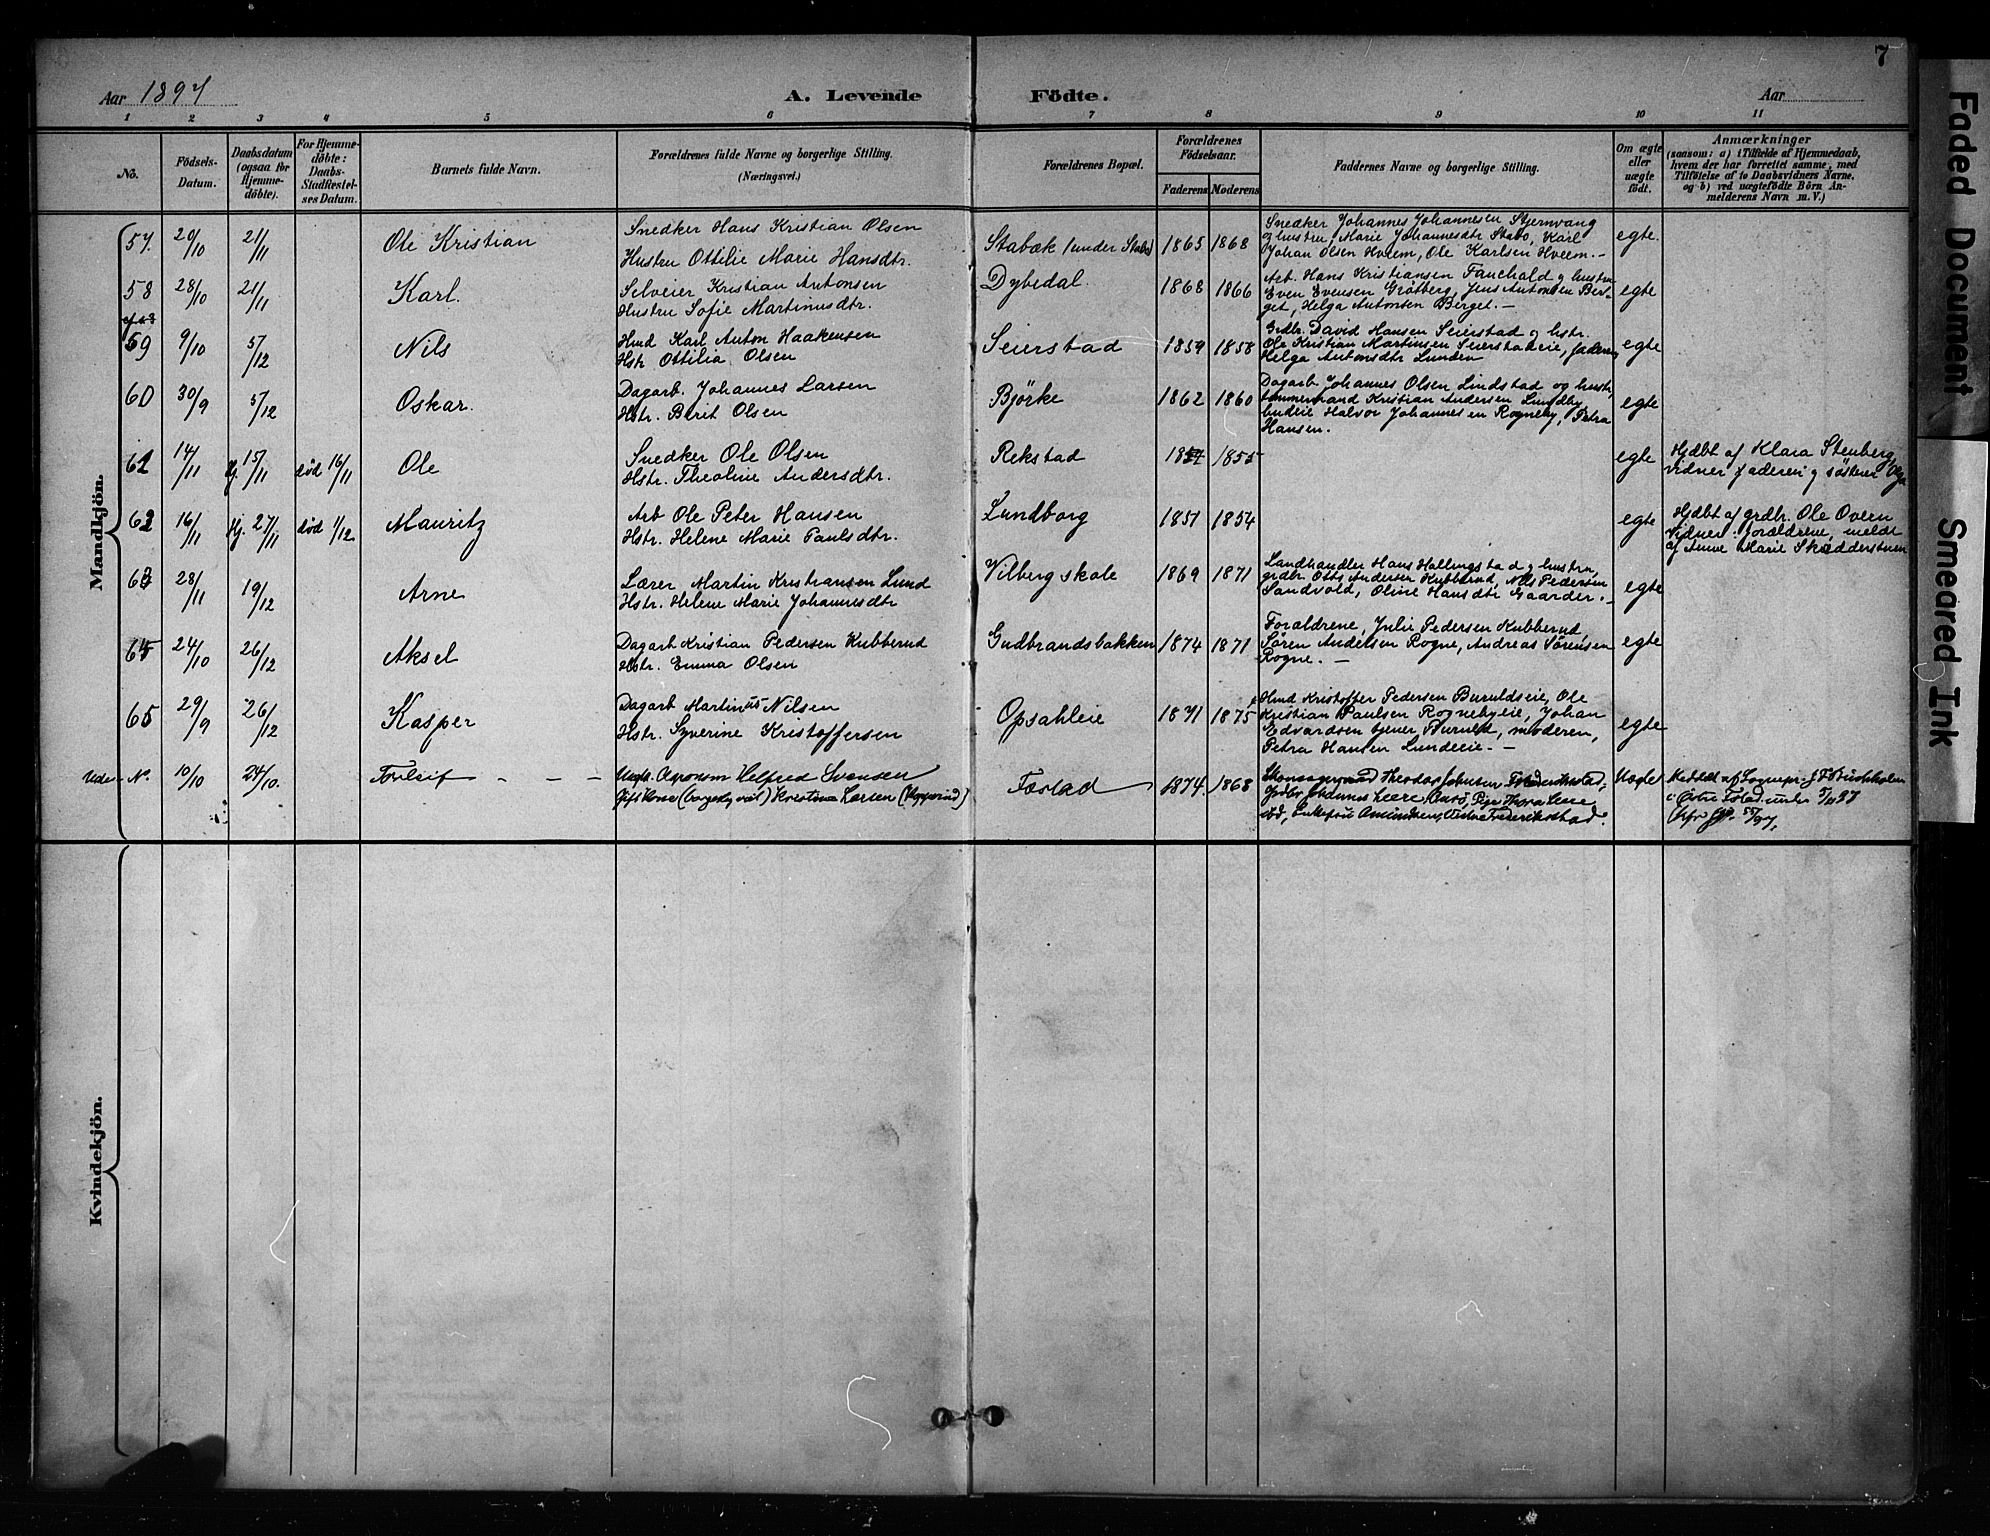 7
Aar 1897 A. Levende Födte. Aar
1 2 3 4 5 6 7 8 9 10 11
No.
Födsels-Datum.
Daabsdatum (ogsaa for Hjemme-döbte).
For Hjemme-döbte: Daabs-Stadfæstel-ses Datum.
Barnets fulde Navn.
Forældrenes fulde Navne og borgerlige Stilling.
(Næringsvei.)
Forældrenes Bopæl.
Forældrenes Födselsaar.
Faderens Moderens
Faddernes Navne og borgerlige Stilling.
Om ægte eller uægte födt.
Anmærkninger
(saasom: a) i Tilfælde af Hjemmedaab,
hvem der har forrettet samme, med
Tilföielse af to Daabsvidners Navne,
og b) ved uægtefödte Börn An-
melderens Navn m. V.)
Mandkjön.
57. 29/10 21/11 Ole Kristian
Snedker Hans Kristian Olsen
Hustru Ottilie Marie Hansdtr.
Stabæk (under Stabo) 1865 1868
Snedker Johannes Johannesen Stjernvang
og hustru, Marie Johannesdtr Stabo, Karl
Johan Olsen Hveem, Ole Karlsen Hveem.-
egte.
58 28/10 21/11 Karl.
Selveier Kristian Antonsen
Hustru Sofie Martinusdtr.
Dybedal 1868 1866
Arb. Hans Kristiansen Fauchald og hustru
Even Evensen Grötberg, Jens Antonsen Ber-
get, Helga Antonsen Berget.-
egte
59 9/10 5/12 Nils
Hmd Karl Anton Haakensen
Hstr Ottilia Olsen
Seierstad 1859 1858
Grdbr. David Hansen Seierstad og hstr.
Ole Kristian Martinsen Seierstadeie, faderen,
Helga Antonsdtr Lunden
egte
60 30/9 5/12 Oskar.
Dagarb. Johannes Larsen
Hstr. Berit Olsen
Björke 1862 1860
Dagarb Johannes Olsen Lindstad og hustr,
tömmermand Kristian Andersen Lundby
Halvor Johannesen Rogneby, Petra
Hansen.
egte
61 14/11 Hj. 15/11 död 16/11 Ole
Snedker Ole Olsen
Hstr. Theoline Andersdtr.
Rekstad 1854 1855
egte
Hjdbt af Klara Stenberg,
vidner faderen og söstren Olga
62 16/11 Hj. 27/11 död 1/12 Mauritz
Arb Ole Peter Hansen
Hstr. Helene Marie Paulsdtr.
Lundborg 1851 1854
egte
Hjdbt af grdbr. Ole Overn
Vidner: forældrene, meldt
af Anne Marie Skrædderstuen
63 28/11 19/12 Arne
Lærer Martin Kristiansen Lund
Hstr. Helene Marie Johannesdtr
Vilberg skole 1869 1871
Landhandler Hans Hallingstad og hustru,
grdbr Otto Andersen Kubberud, Nils Pedersen
Sandvold, Oline Hansdtr Gaarder.-
egte
64 24/10 26/12 Aksel
Dagarb Kristian Pedersen Kubberud
Hstr. Emma Olsen
Gudbrandsbakken 1874 1871
Forældrene, Julie Pedersen Kubberud,
Sören Andersen Rogne, Andreas Sörensen
Rogne.-
egte
65 29/9 26/12 Kasper
Dagarb Martinius Nilsen
Hstr. Syverine Kristoffersen
Opsahleie 1871 1875
Hmd Kristoffer Pedersen Buruldseie, Ole
Kristian Paulsen Rognebyeie, Johan
Edvardsen tjener Buruld, moderen,
Petra Hansen Lundeeie.-
egte
Uden No. 10/10 24/10. Torleif - - -
Ungk. Agronom Helfred Svensen
Gift Kone (borgerlig viet) Kristine Larsen
Festad 1874. 1868
Theodor Johnsen Frederikstad,
Johannes Leere Pige Thora Leere
Enkefru Amundsen, Frederikstad.
Uægte
Meddelt af Sognepr. J F Buchholm
i Östre Toten under 5/11 97